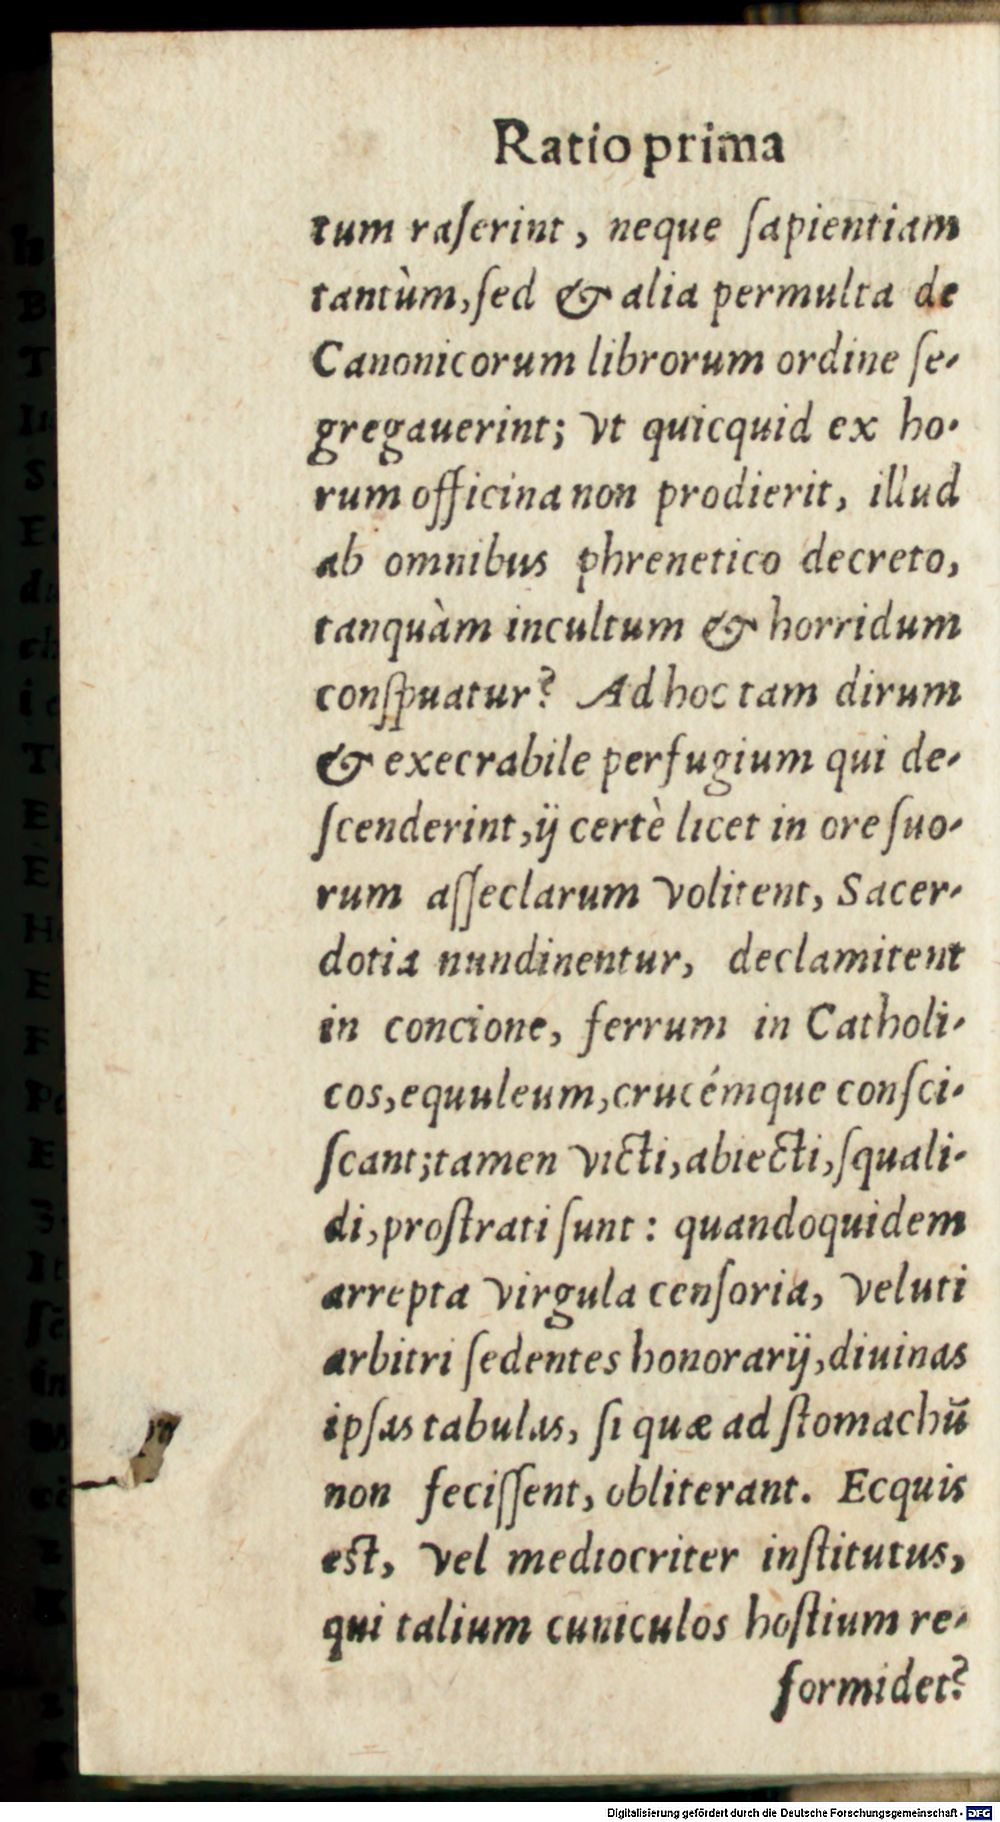 Ratio prima
tum raſerint, neque ſapientiam
tantùm, ſed & alia permulta de
Canonicorum librorum ordine ſe-
gregauerint; vt quicquid ex ho-
rum officina non prodierit, illud
ab omnibus phrenetico decreto,
tanquàm incultum & horridum
conſpuatur? Ad hoc tam dirum
& execrabile perfugium qui de-
ſcenderint, ij certè licet in ore ſuo-
rum aſſeclarum volitent, Sacer-
dotia nundinentur, declamitent
in concione, ferrum in Catholi-
cos, equuleum, crucémque conſci-
ſcant; tamen victi, abiecti, ſquali-
di, proſtrati ſunt: quandoquidem
arrepta virgula cenſoria, veluti
arbitri ſedentes honorarij, diuinas
ipſas tabulas, ſi quæ ad ſtomachũ
non feciſſent, obliterant. Ecquis
eſt, vel mediocriter inſtitutus,
qui talium cuniculos hoſtium re-
formidet?
Digitalisierung gefördert durch die Deutsche Forschungsgemeinschaft - DFG